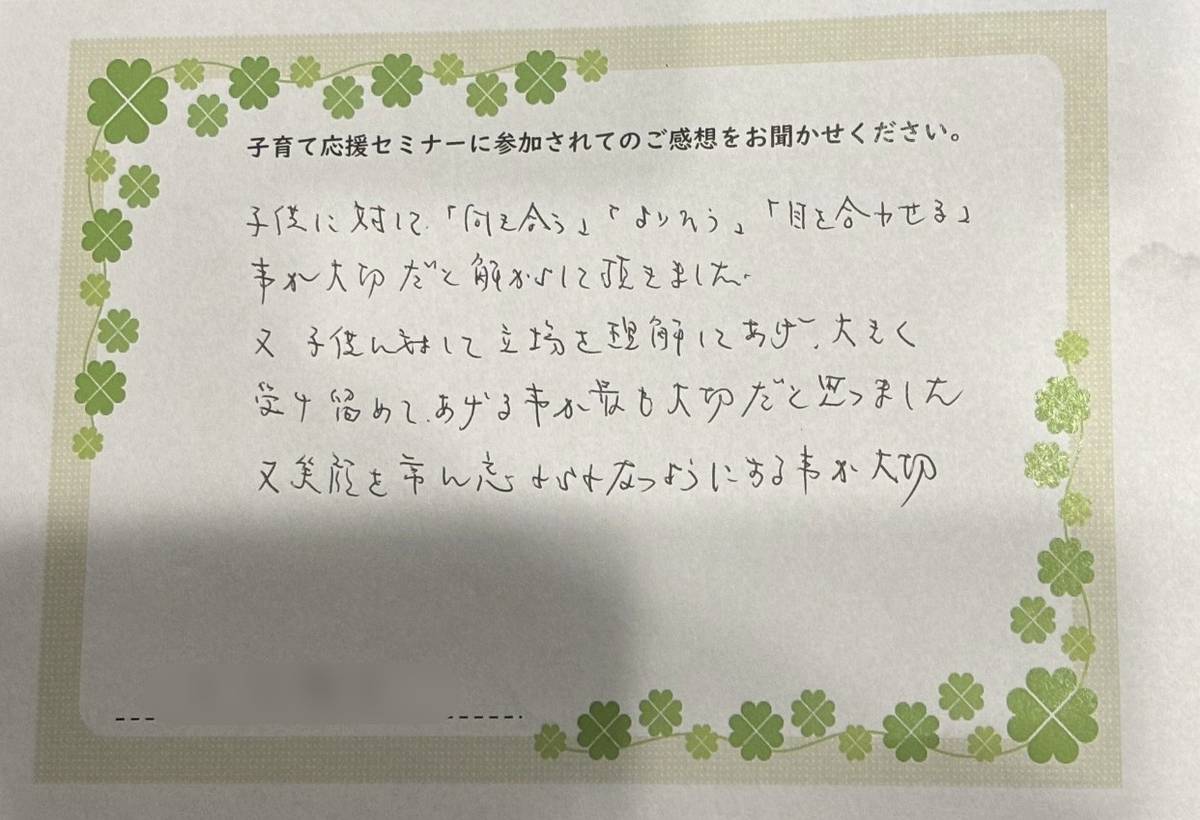 子育て応援セミナーに参加されてのご感想をお聞かせください。
子供に対して、「向き合う」「よりそう」「目を合わせる」
事が大切だと解からして頂きました。
又 子供に対して立場を理解してあげ、大きく
受け留めて、あげる事が最も大切だと思いました
又 笑顔を常に忘 ようにする事が大切